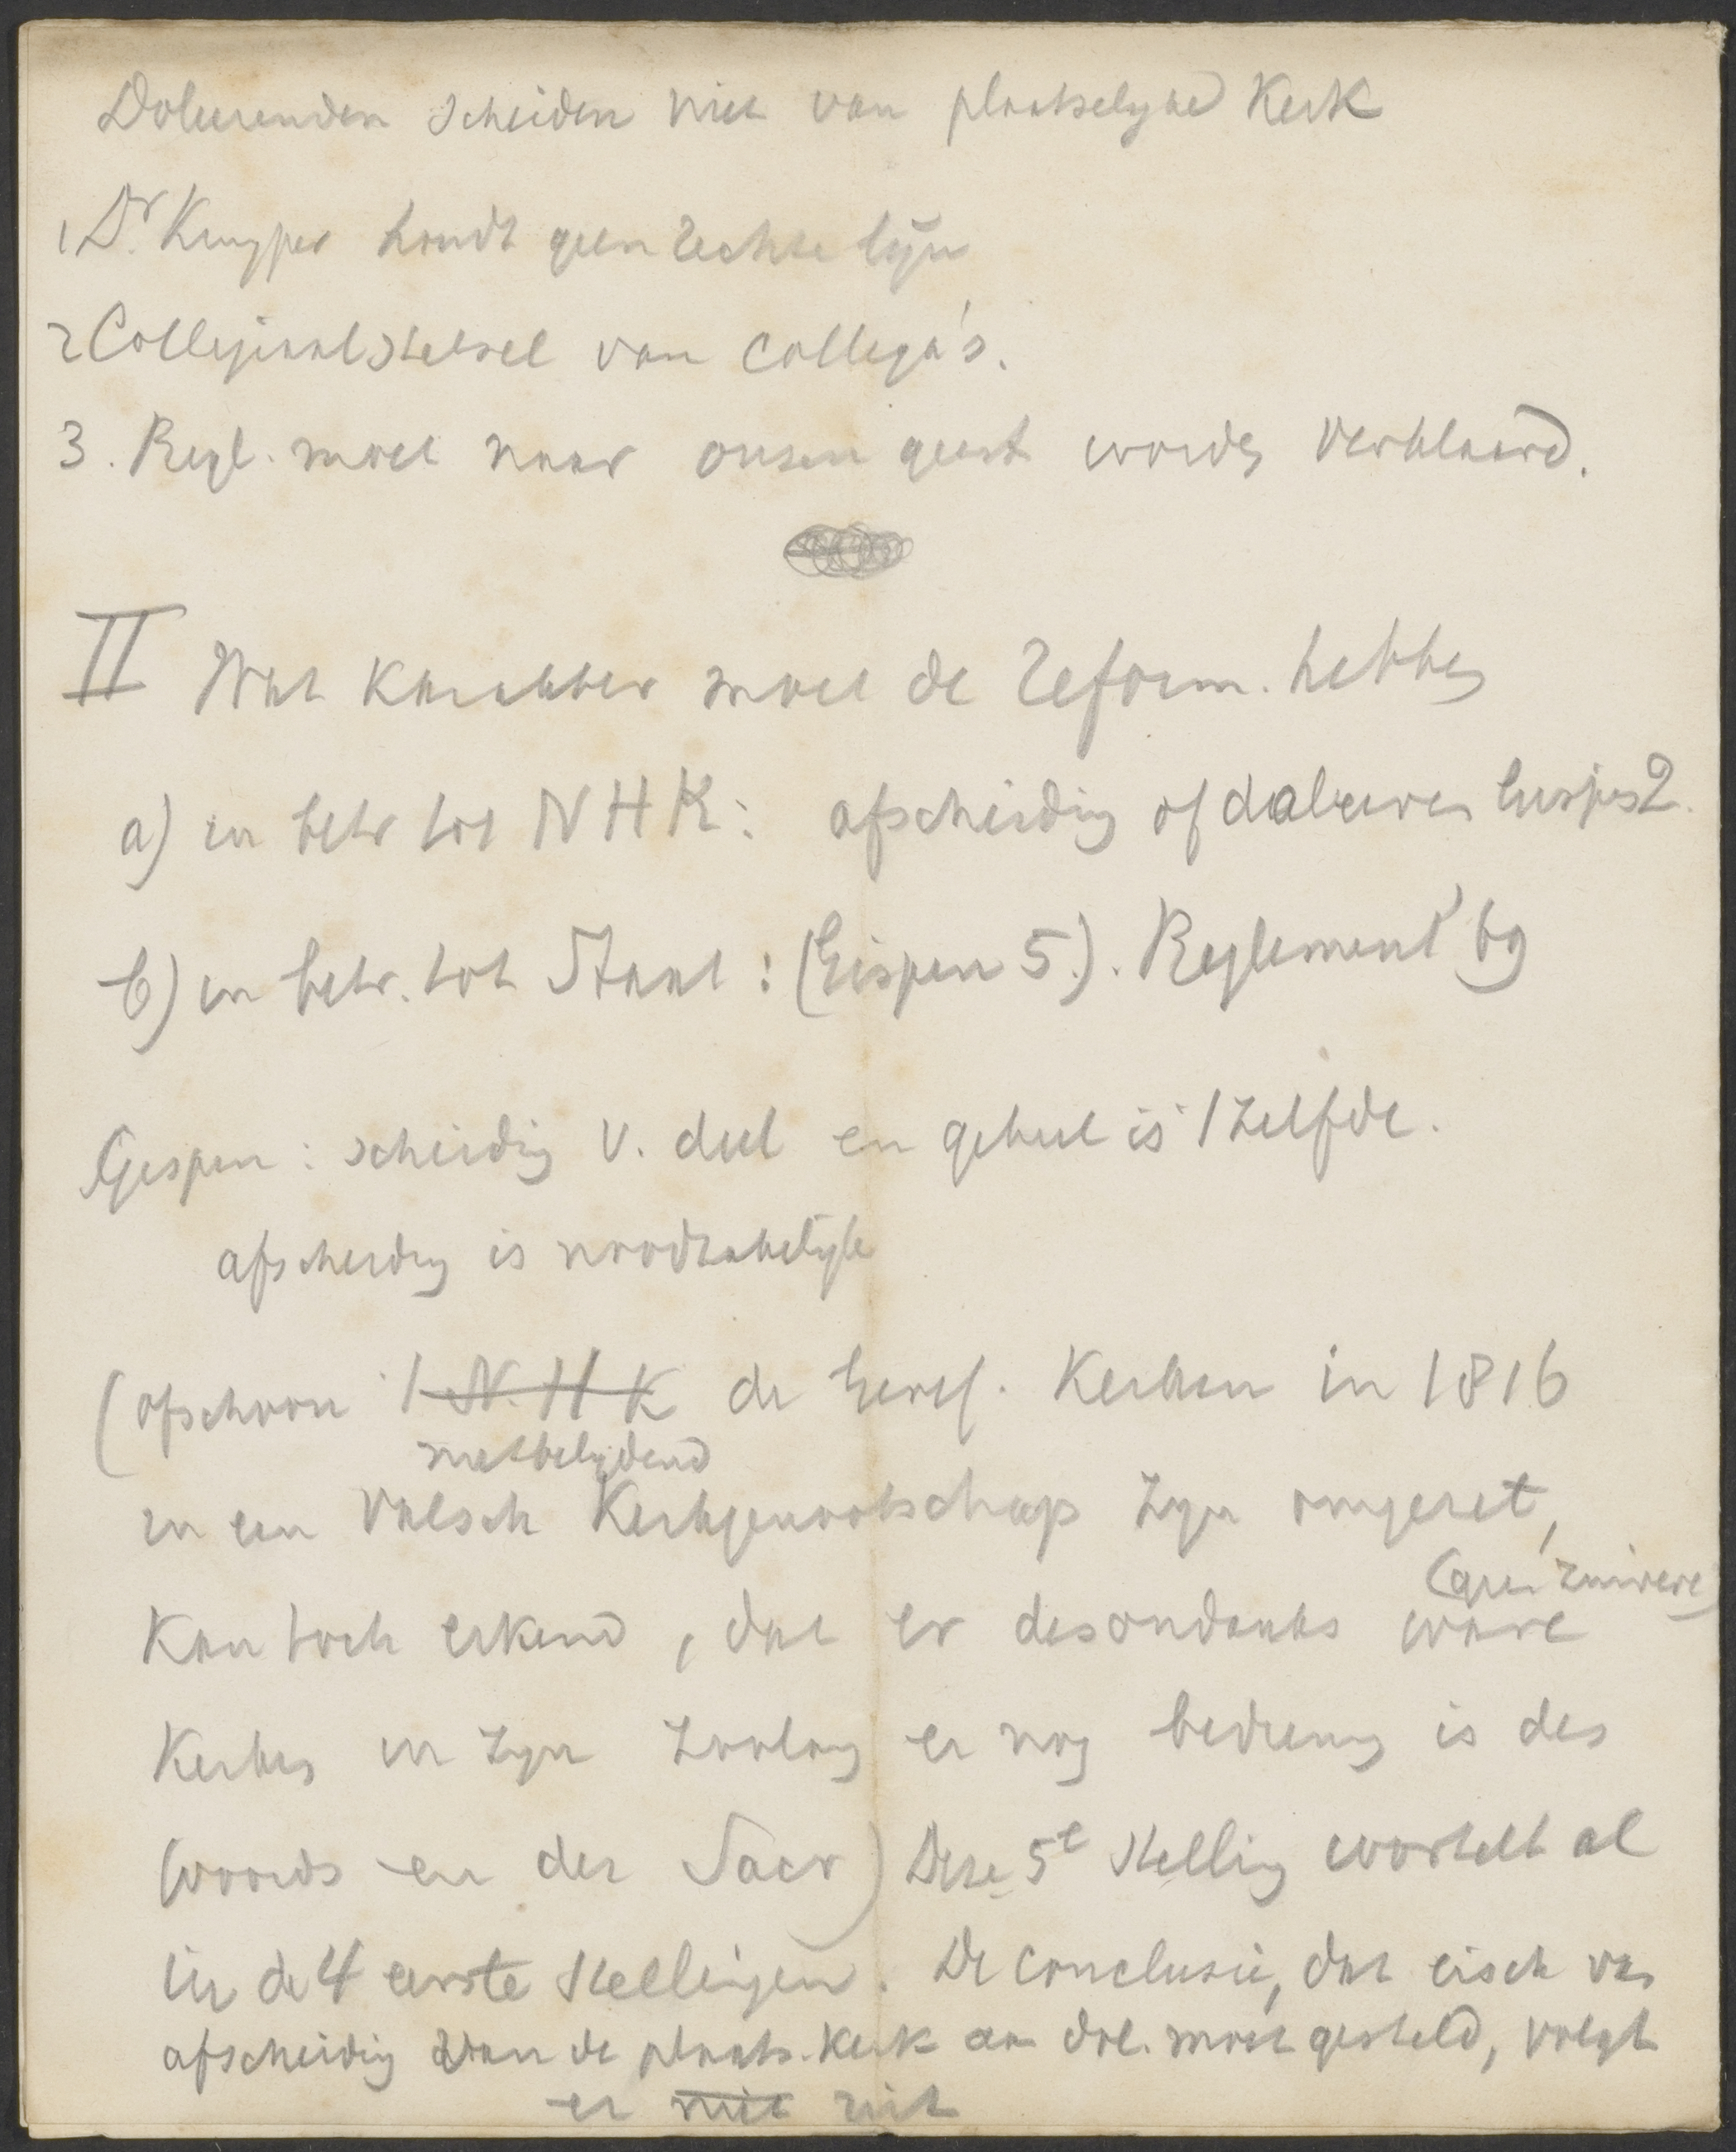 Doleerenden scheiden niet van plaatselyke Kerk
1 Dr. Kuyper houdt geen rechte lijn
2 Collegiaalstelsel van collega's.
3. Regl. moet naar onzen geest worden verklaard.
II Wat karakter moet de reform. hebben
a) in betr tot NHK: afscheiding of doleeren Gispen 2.
b) in betr. tot Staat: (Gispen 5.). Reglement 69
Gispen: scheiding v. deel en geheel is 't zelfde.
afscheiding is noodzakelijk
(ofschoon 't N. H K de Geref. Kerken in 1816
met belydend
in een valsch Kerkgenootschap zyn omgezet,
(geen zuivere
kan toch erkend, dat er desondanks ware
Kerken in zyn zoolang er nog bediening is des
Woords en der Sacr) Deze 5e stelling wortelt al
in de 4 eerste stellingen. De conclusie, dat eisch van
afscheiding van de plaats. Kerk aan dol. moet gesteld, volgt
er niet uit